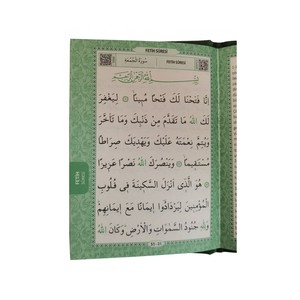 FETİH SÛRESİ
FETİH SÛRESİ
بِسْمِ اللّٰهِ الرَّحْمٰنِ الرَّحِيمِ
اِنَّا فَتَحْنَا لَكَ فَتْحًا مُبِينًا ۞ لِيَغْفِرَ
لَكَ اللّٰهُ مَا تَقَدَّمَ مِنْ ذَنْبِكَ وَمَا تَاَخَّرَ
وَيُتِمَّ نِعْمَتَهُ عَلَيْكَ وَيَهْدِيَكَ صِرَاطًا
مُسْتَقِيمًا ۞ وَيَنْصُرَكَ اللّٰهُ نَصْرًا عَزِيزًا
۞ هُوَ الَّذِى اَنْزَلَ السَّكِينَةَ فِى قُلُوبِ
الْمُؤْمِنِينَ لِيَزْدَادُوا اِيمَانًا مَعَ اِيمَانِهِمْ
وَلِلّٰهِ جُنُودُ السَّمٰوَاتِ وَالْاَرْضِ وَكَانَ اللّٰهُ